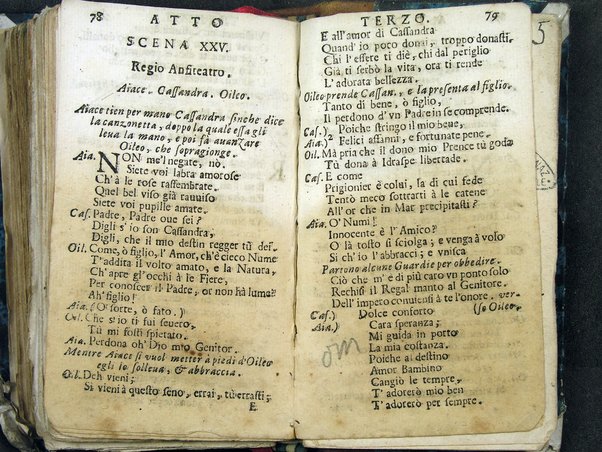 78 ATTO
SCENA XXV.
Regio Anfiteatro.
Aiace. Cassandra. Oileo.
Aiace tien per mano Cassandra finche dice
la canzonetta, doppo la quale essa gli
leua la mano, e poi fà auanzare
Oileo, che sopragionge.
Aia. NON me'l negate, nò.
Siete voi labra amorose
Ch'à le rose rassembrate.
Quel bel viso già rauuiso
Siete voi pupille amate.
Cas. Padre, Padre oue sei?
Digli s'io son Cassandra,
Digli, che il mio destin regger tù dei.
Oil. Come, ò figlio, l'Amor, ch'è cieco Nume
T'addita il volto amato, e la Natura,
Ch'apre gl'occhi à le Fiere,
Per conoscer il Padre, or non hà lume?
Ah figlio!
Aia. (O sorte, ò fato.)
Oil. Che s'io ti fui seuero,
Tù mi fosti spietato.
Aia. Perdona oh' Dio mio Genitor.
Mentre Aiace si vuol metter à piedi d'Oileo
egli lo solleua, & abbraccia.
Oil. Deh vieni;
Sì vieni à questo seno, errai, tù errasti;
E
TERZO. 79
E all'amor di Cassandra
Quand'io poco donai, troppo donasti,
Chi l'essere ti diè, chi dal periglio
Già ti serbò la vita, ora ti rende
L'adorata bellezza.
Oileo prende Cassan., e la presenta al figlio.
Tanto di bene, ò figlio,
Il perdono d'vn Padre in se comprende.
Cas.) 2 Poiche stringo il mio bene,
Aia.) Felici affanni, e fortunate pene.
Oil. Mà pria che il dono mio Prence tù goda
Tù dona à Idraspe libertade.
Cas. E come
Prigionier è colui, la di cui fede
Tentò meco sottrarti à le catene
All'or che in Mar precipitasti?
Aia. O' Numi!
Innocente è l'Amico?
O là tosto si sciolga; e venga à volo
Sì ch'io l'abbracci; e vnisca
Partono alcune Guardie per obbedire.
Ciò che m'è di più caro vn ponto solo
Rechisi il Regal manto al Genitore.
Dell'impero conuiensi à te l'onore. ver-
Cas.) Dolce conforto (so Oileo.
Aia.) Cara speranza;
Mi guida in porto
La mia costanza.
Poiche al destino
Amor Bambino
Cangiò le tempre,
T'adorerò mio ben
T'adorerò per sempre.
5
om